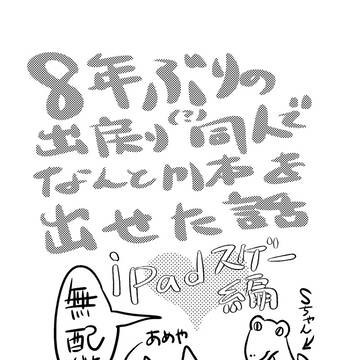 8年ぶりの
出戻り(?)同人で
なんと川本を
出せた話
iPadスゲー
編
無配
あめや
Sちゃん